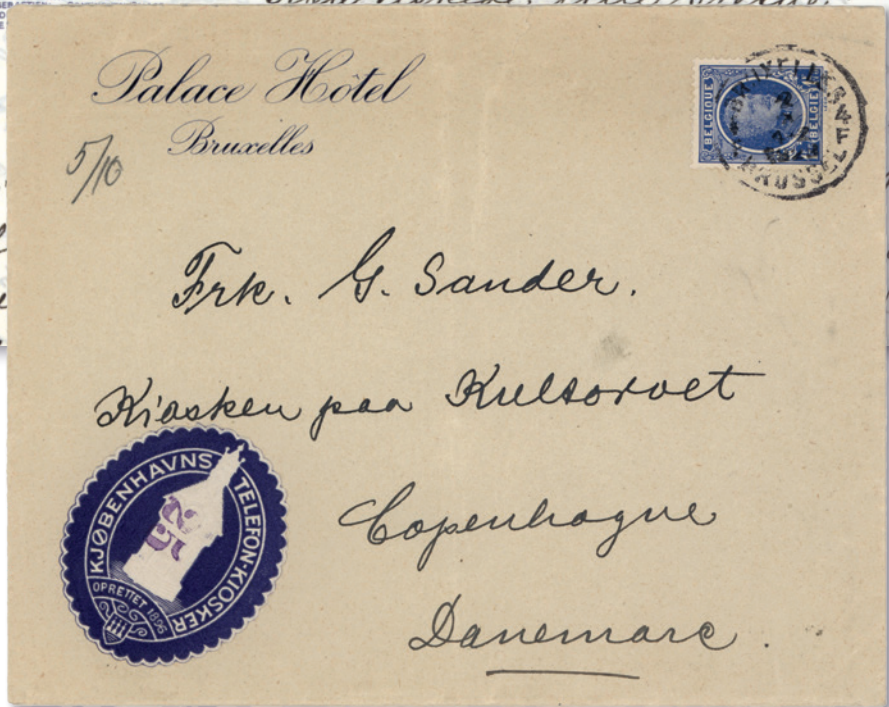 Palace Hôtel
Bruxelles
5/10
BELGIQUE
BELGIË
BRUXELLES
BRUSSEL
Frk. G. Sander.
Kiosken paa Kultorvet
Copenhague
Danemarc.
KJØBENHAVNS TELEFON-KIOSKER
25
OPRETTET 1896